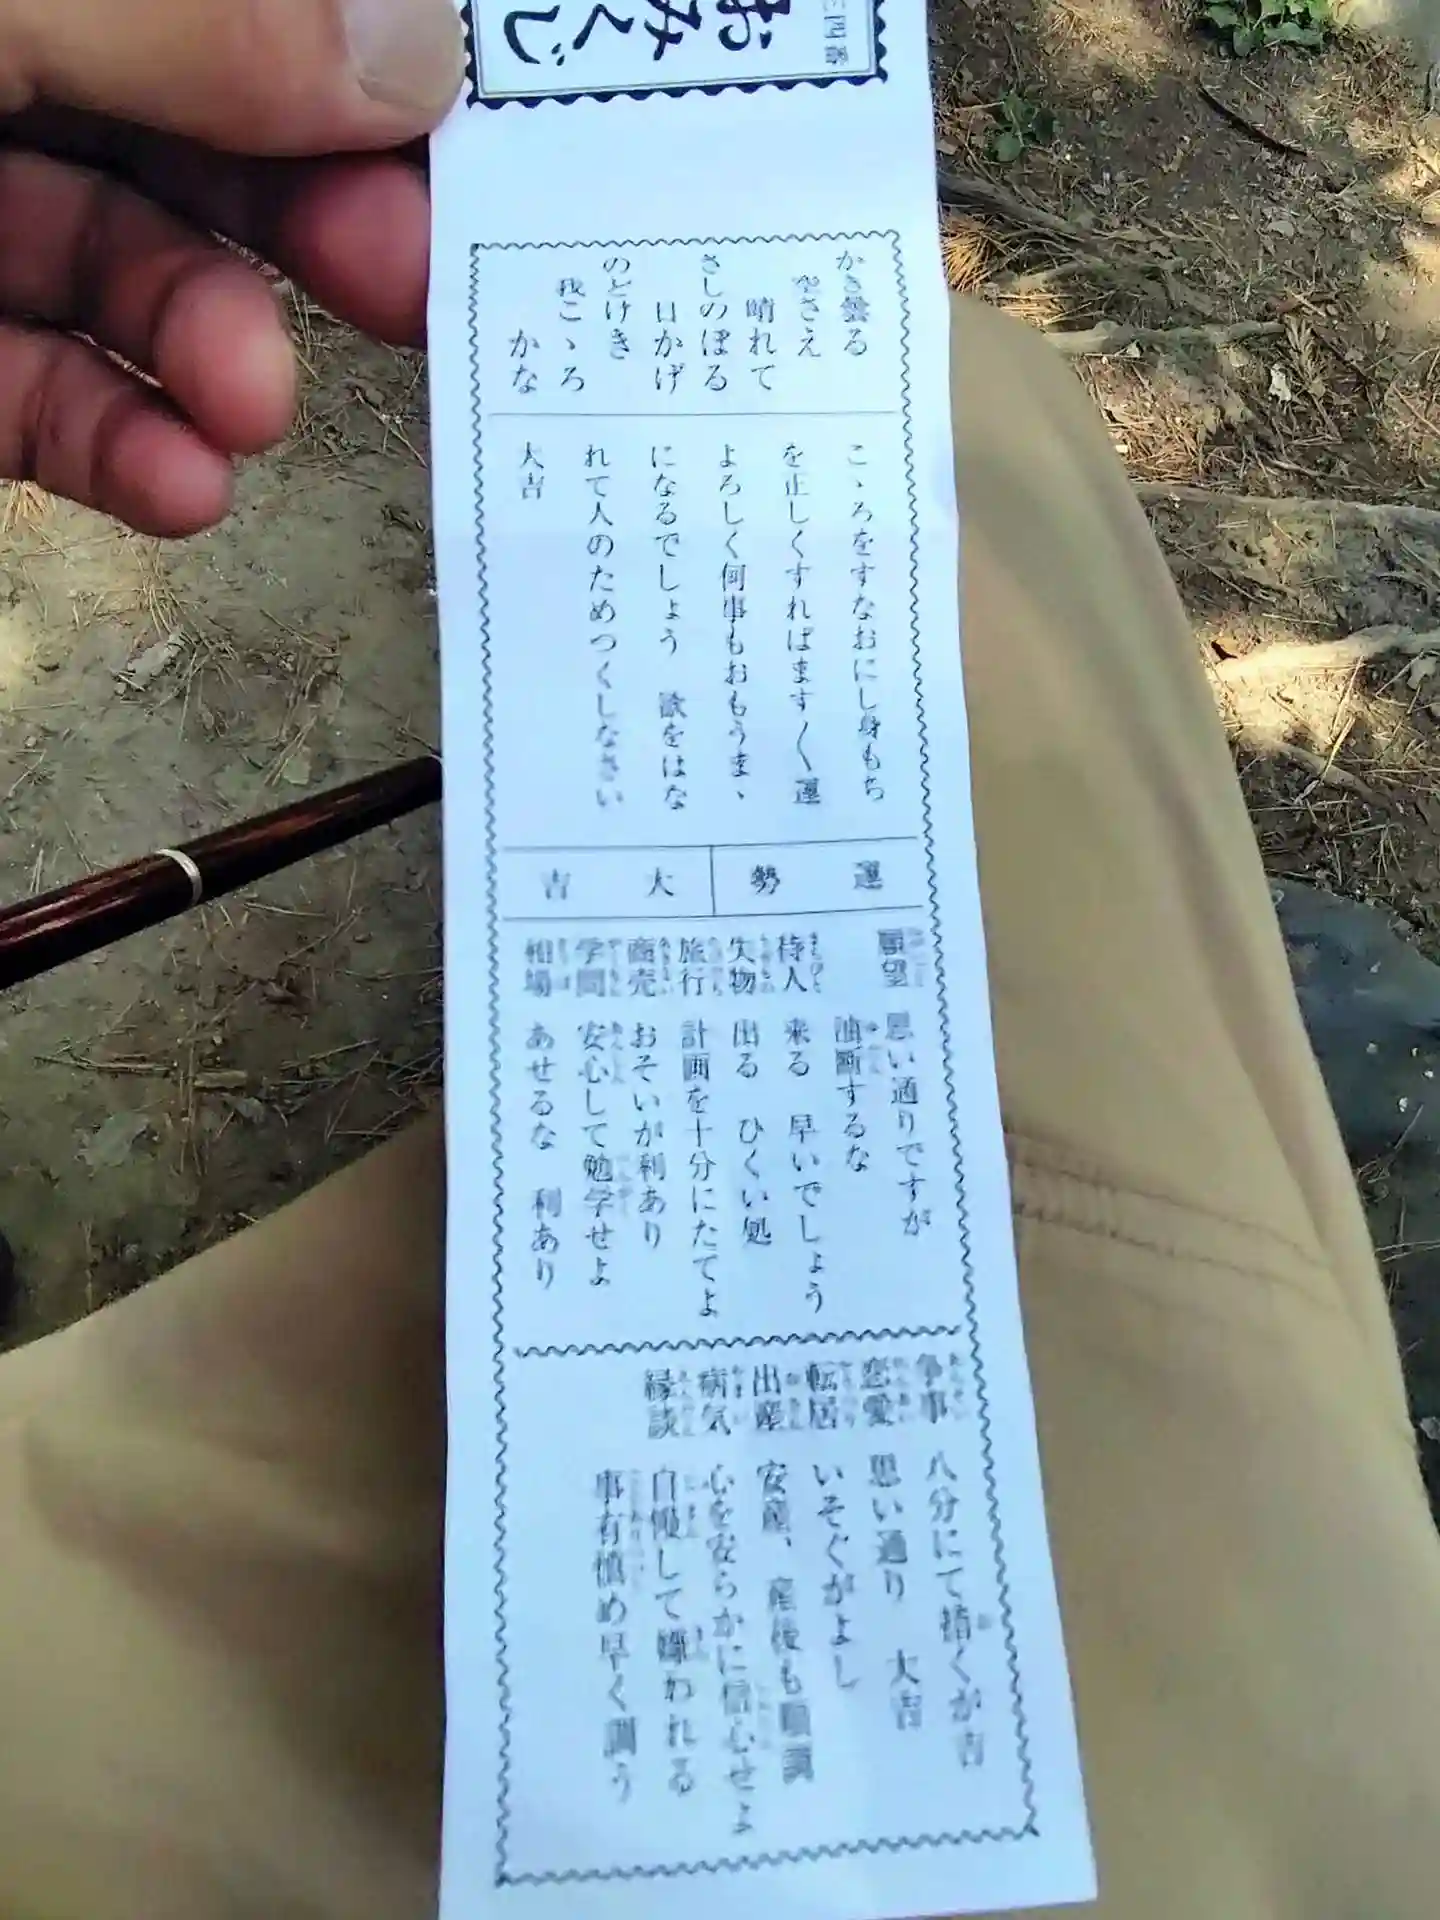 四番
おみくじ
かき曇る
空さえ
晴れて
さしのぼる
日かげ
のどけき
我こゝろ
かな
こゝろをすなおにし身もち
を正しくすればます〱運
よろしく何事もおもうまゝ
になるでしょう 欲をはな
れて人のためつくしなさい
大吉
運勢 大吉
願望 思い通りですが
油断するな
待人 来る 早いでしょう
失物 出る ひくい処
旅行 計画を十分にたてよ
商売 おそいが利あり
学問 安心して勉学せよ
相場 あせるな 利あり
争事 八分にて措くが吉
恋愛 思い通り 大吉
転居 いそぐがよし
出産 安産、産後も順調
病気 心を安らかに信心せよ
縁談 自慢して嫌われる
事有慎め早く調う